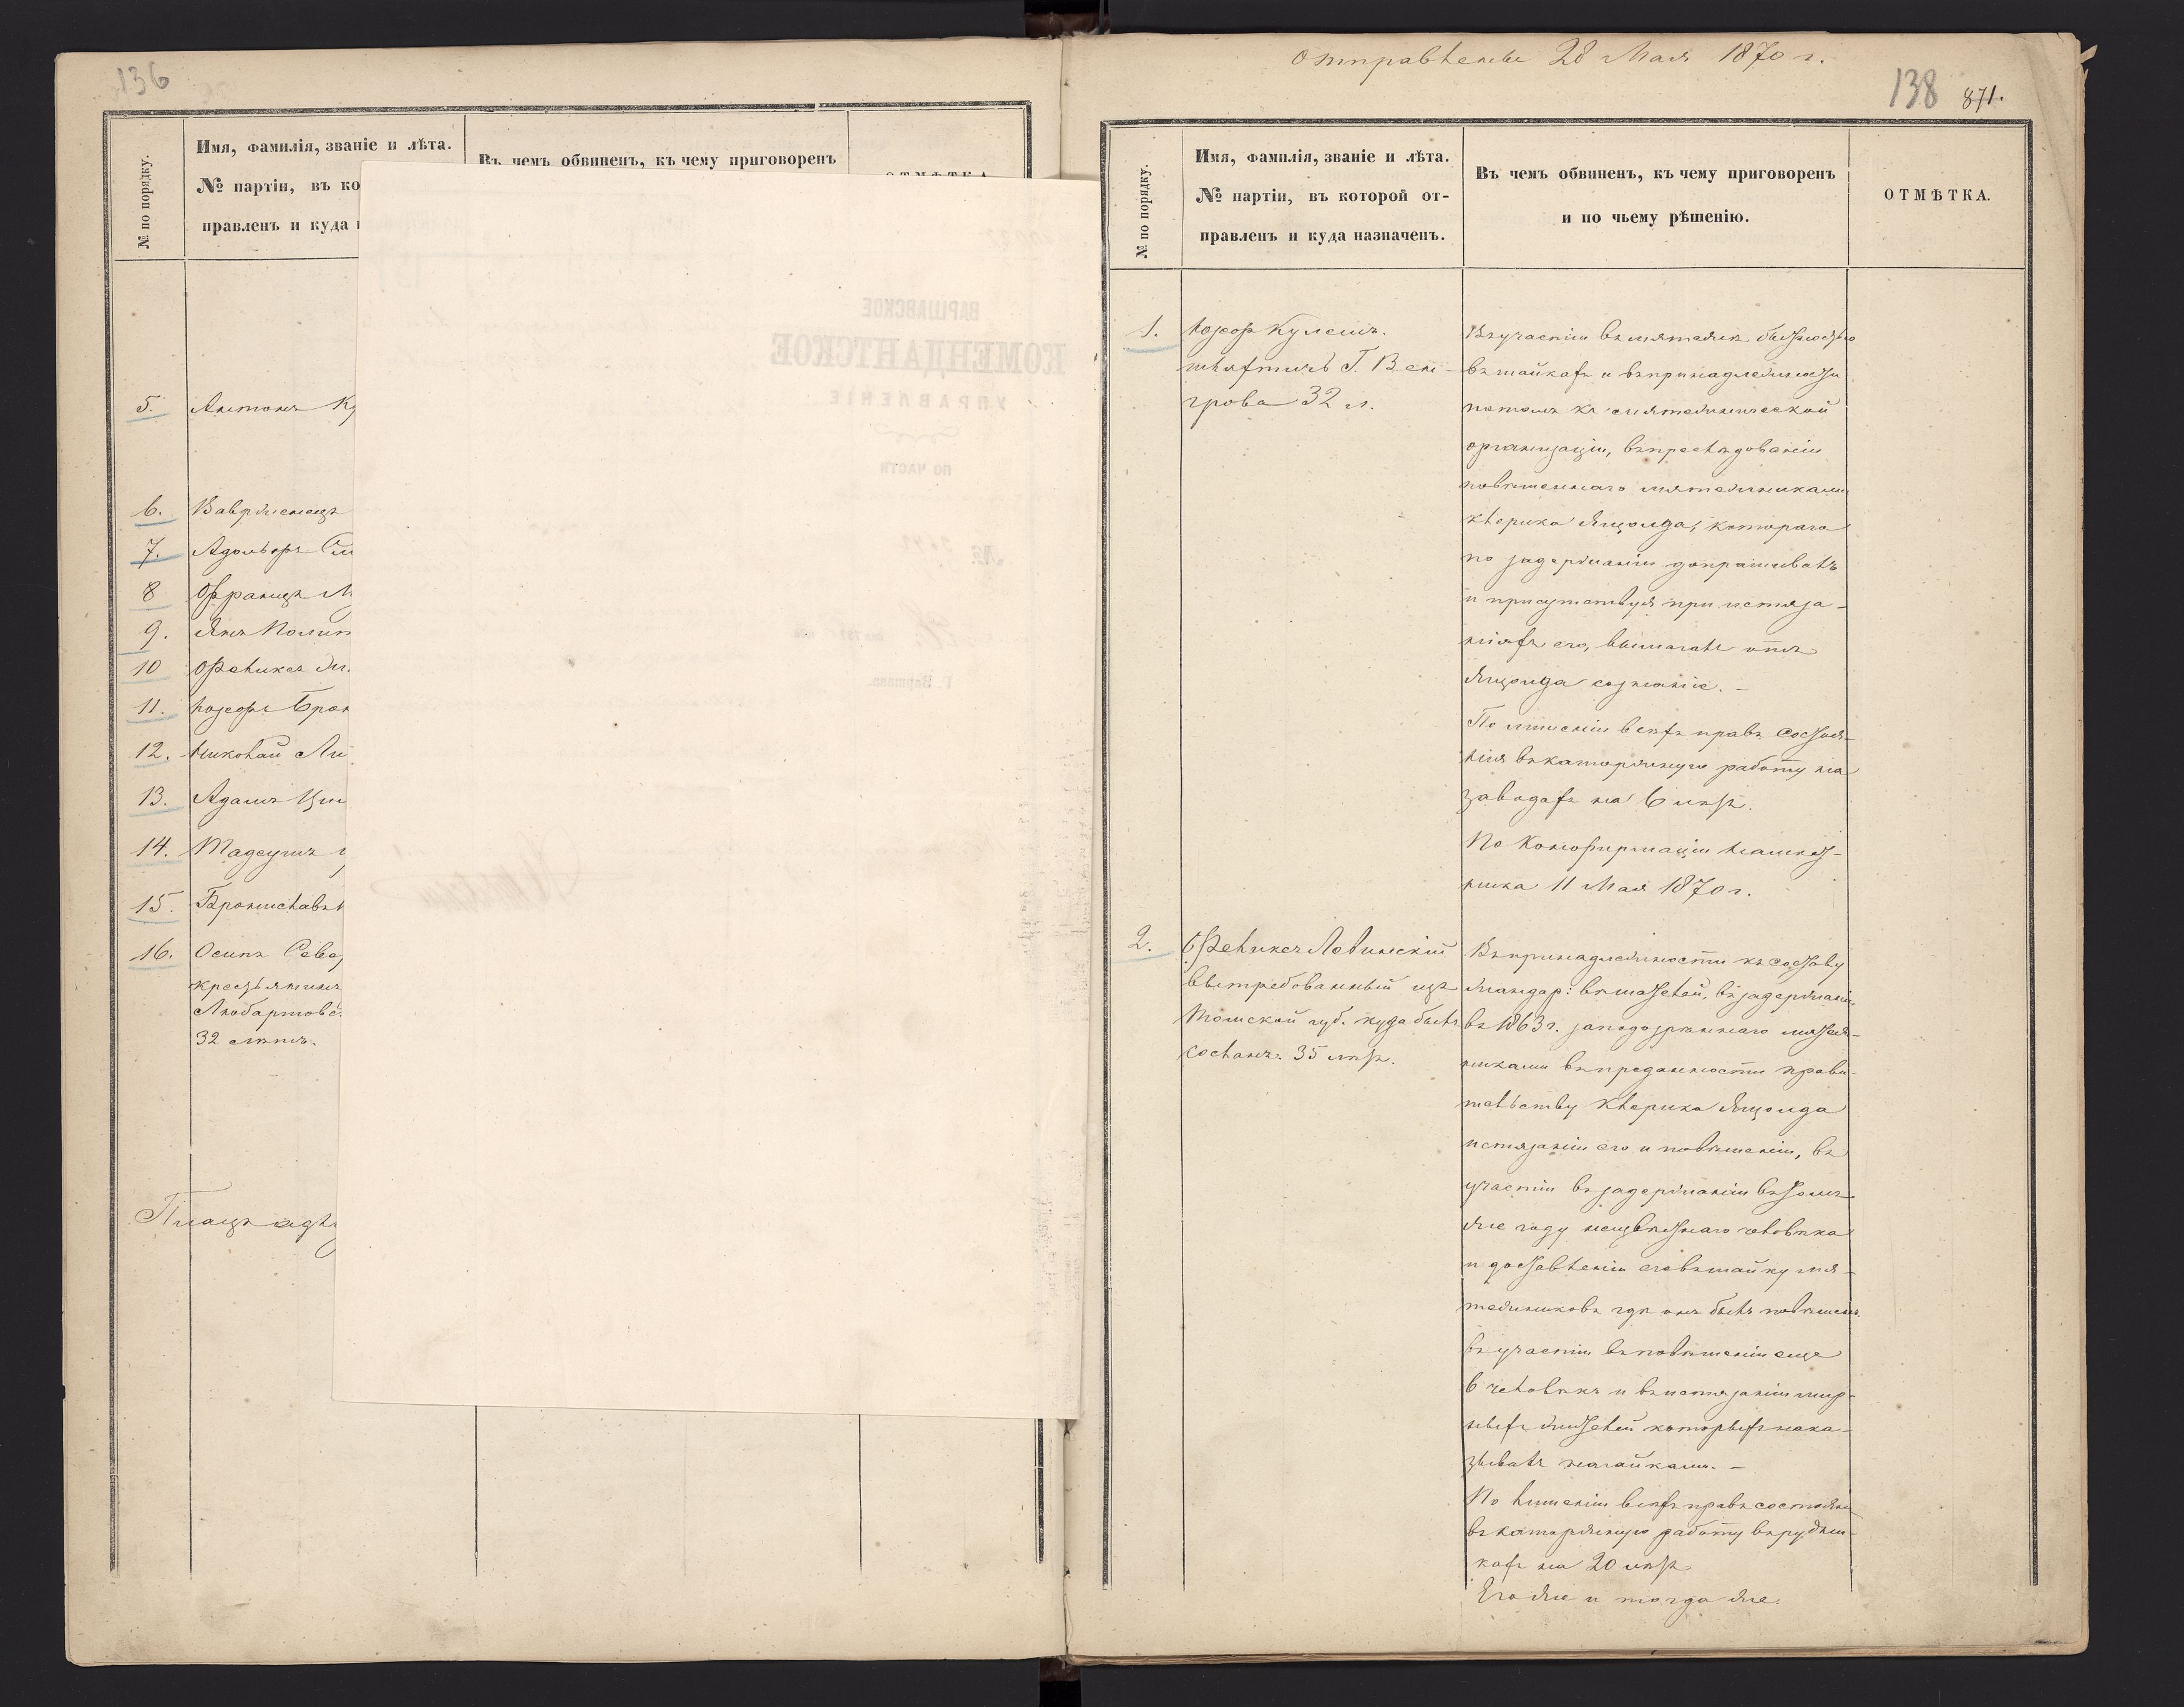 136
Имя, фамилія, званіе и лѣта.
№ по порядку.
№ партіи, въ ко
правленъ и куда
Въ чемъ обвиненъ, къ чему приговоренъ
5. Антонъ Ку
6. Вавржинецъ
7. Адольфъ
8 Францъ М
9. Янъ
10 Феликсъ
11. Іозефъ Бра
12. Николай Ли
13. Адамъ
14. Тадеушъ
15. Брониславъ
16. Осипъ Севе
крестьянинъ
Любартовс
32 лѣтъ.
Плацъ адъ
ВАРШАВСКОЕ
КОМЕНДАНТСКОЕ
УПРАВЛЕНІЕ
ПО ЧАСТИ
№
Г. Варшава.
Отправлены 28 Мая 1870 г.
138 871.
№ по порядку.
Имя, фамилія, званіе и лѣта.
№ партіи, въ которой от-
правленъ и куда назначенъ.
Въ чемъ обвиненъ, къ чему приговоренъ
и по чьему рѣшенію.
ОТМѢТКА.
1. Іозефъ Кулеша.
шляхтичъ Г. Вен-
грова 32 л.
Въ участіи въ мятежѣ бытностью
въ шайкахъ и въ принадлежности
потомъ къ мятежнической
организаціи, въ преслѣдованіи
повѣшеннаго мятежниками
клерика Яцолда, котораго
по задержаніи допрашивалъ
и присутствуя при истяза-
ніяхъ его, вымогалъ отъ
Яцолда сознаніе. –
По лишеніи всѣхъ правъ состоя-
нія въ каторжную работу на
заводахъ на 6 лѣтъ.
По конфирмаціи Намѣст-
ника 11 Мая 1870 г.
2. Феликсъ Левинскій
вытребованный изъ
Томской губ. куда былъ
сосланъ. 35 лѣтъ.
Въ принадлежности къ составу
жандар: вѣшателей, въ задержаніи
въ 1863 г. заподозрѣннаго мятеж-
никами въ преданности прави-
тельству клерика Яцолда
истязаніи его и повѣшеніи, въ
участіи въ задержаніи въ томъ
же году неизвѣстнаго человѣка
и доставленіи его въ шайку мя-
тежниковъ гдѣ онъ былъ повѣшенъ.
въ участіи въ повѣшеніи еще
6 человѣкъ и въ истязаніи мир-
ныхъ жителей которыхъ нака-
зывалъ нагайками. –
По лишеніи всѣхъ правъ состоянія
въ каторжную работу въ рудни-
кахъ на 20 лѣтъ
Его же и тогда же.